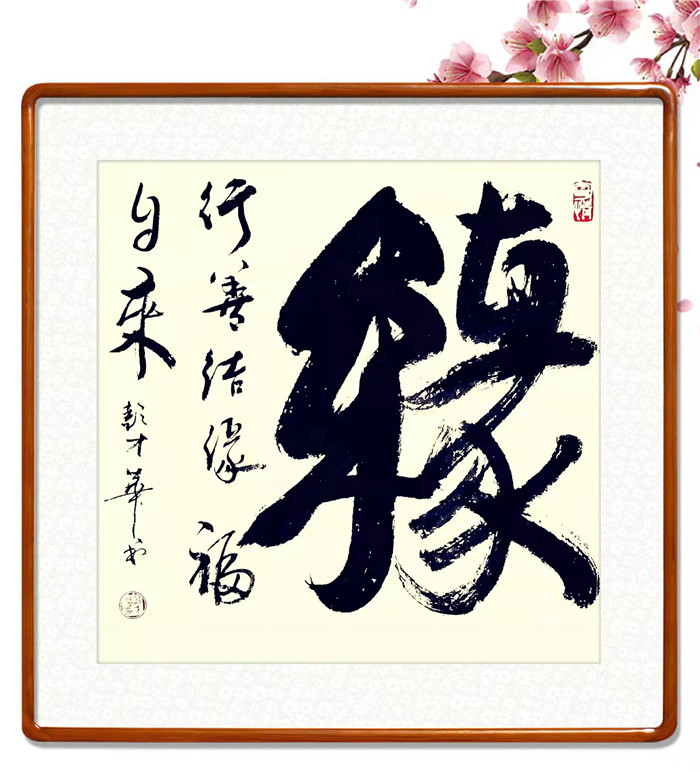 缘
行善结缘福
自来
彭才华书